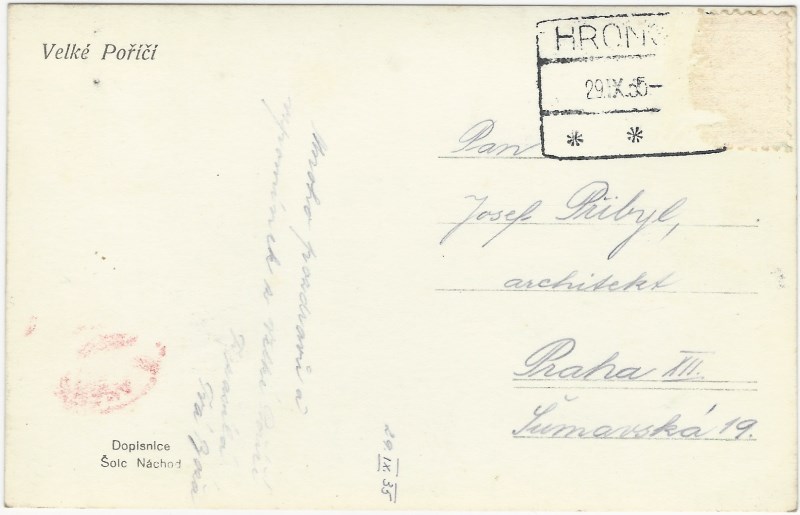 Velké Poříčí
HRONO
29.IX.35-
* *
Pan
Josef Přibyl,
architekt
Praha XII.
Šumavská 19.
Mnoho pozdravů a
vzpomínek z Velké Poříčí
29.IX.35
Dopisnice
Šolc Náchod